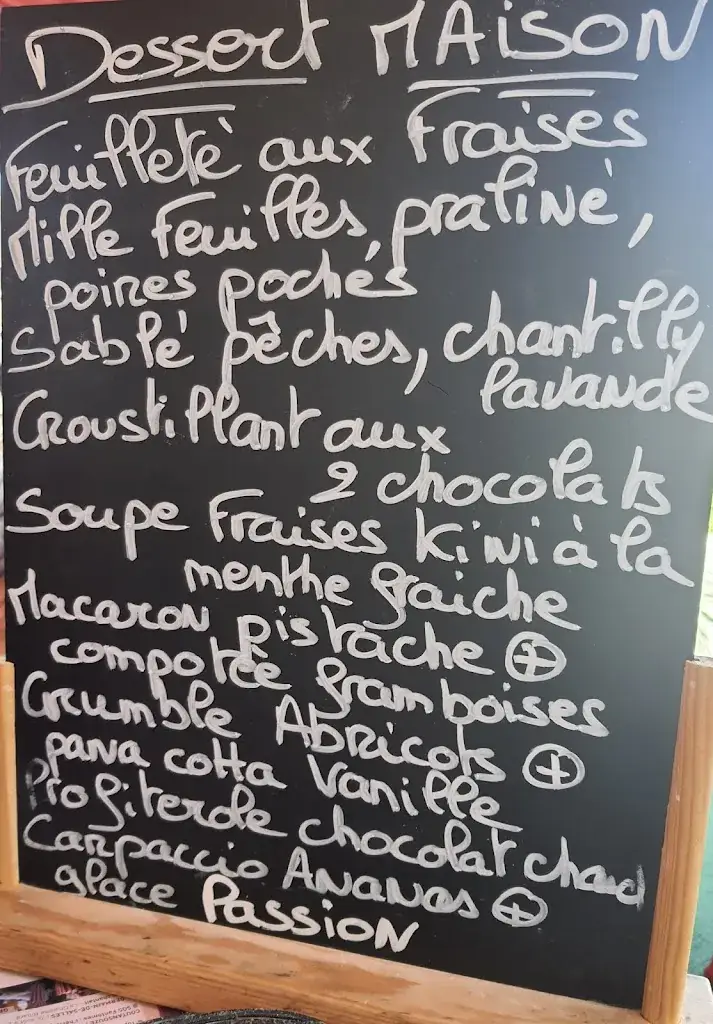 Dessert MAISON
Feuilleté aux Fraises
Mille Feuilles, praliné,
poires pochés
Sablé pêches, chantilly
lavande
Croustillant aux
2 chocolats
Soupe Fraises kiwi à la
menthe fraiche
Macaron pistache ⊕
compotée framboises
Crumble Abricots ⊕
pana cotta Vanille
Profiterole chocolat chaud
Carpaccio ANANAS ⊕
glace PASSION